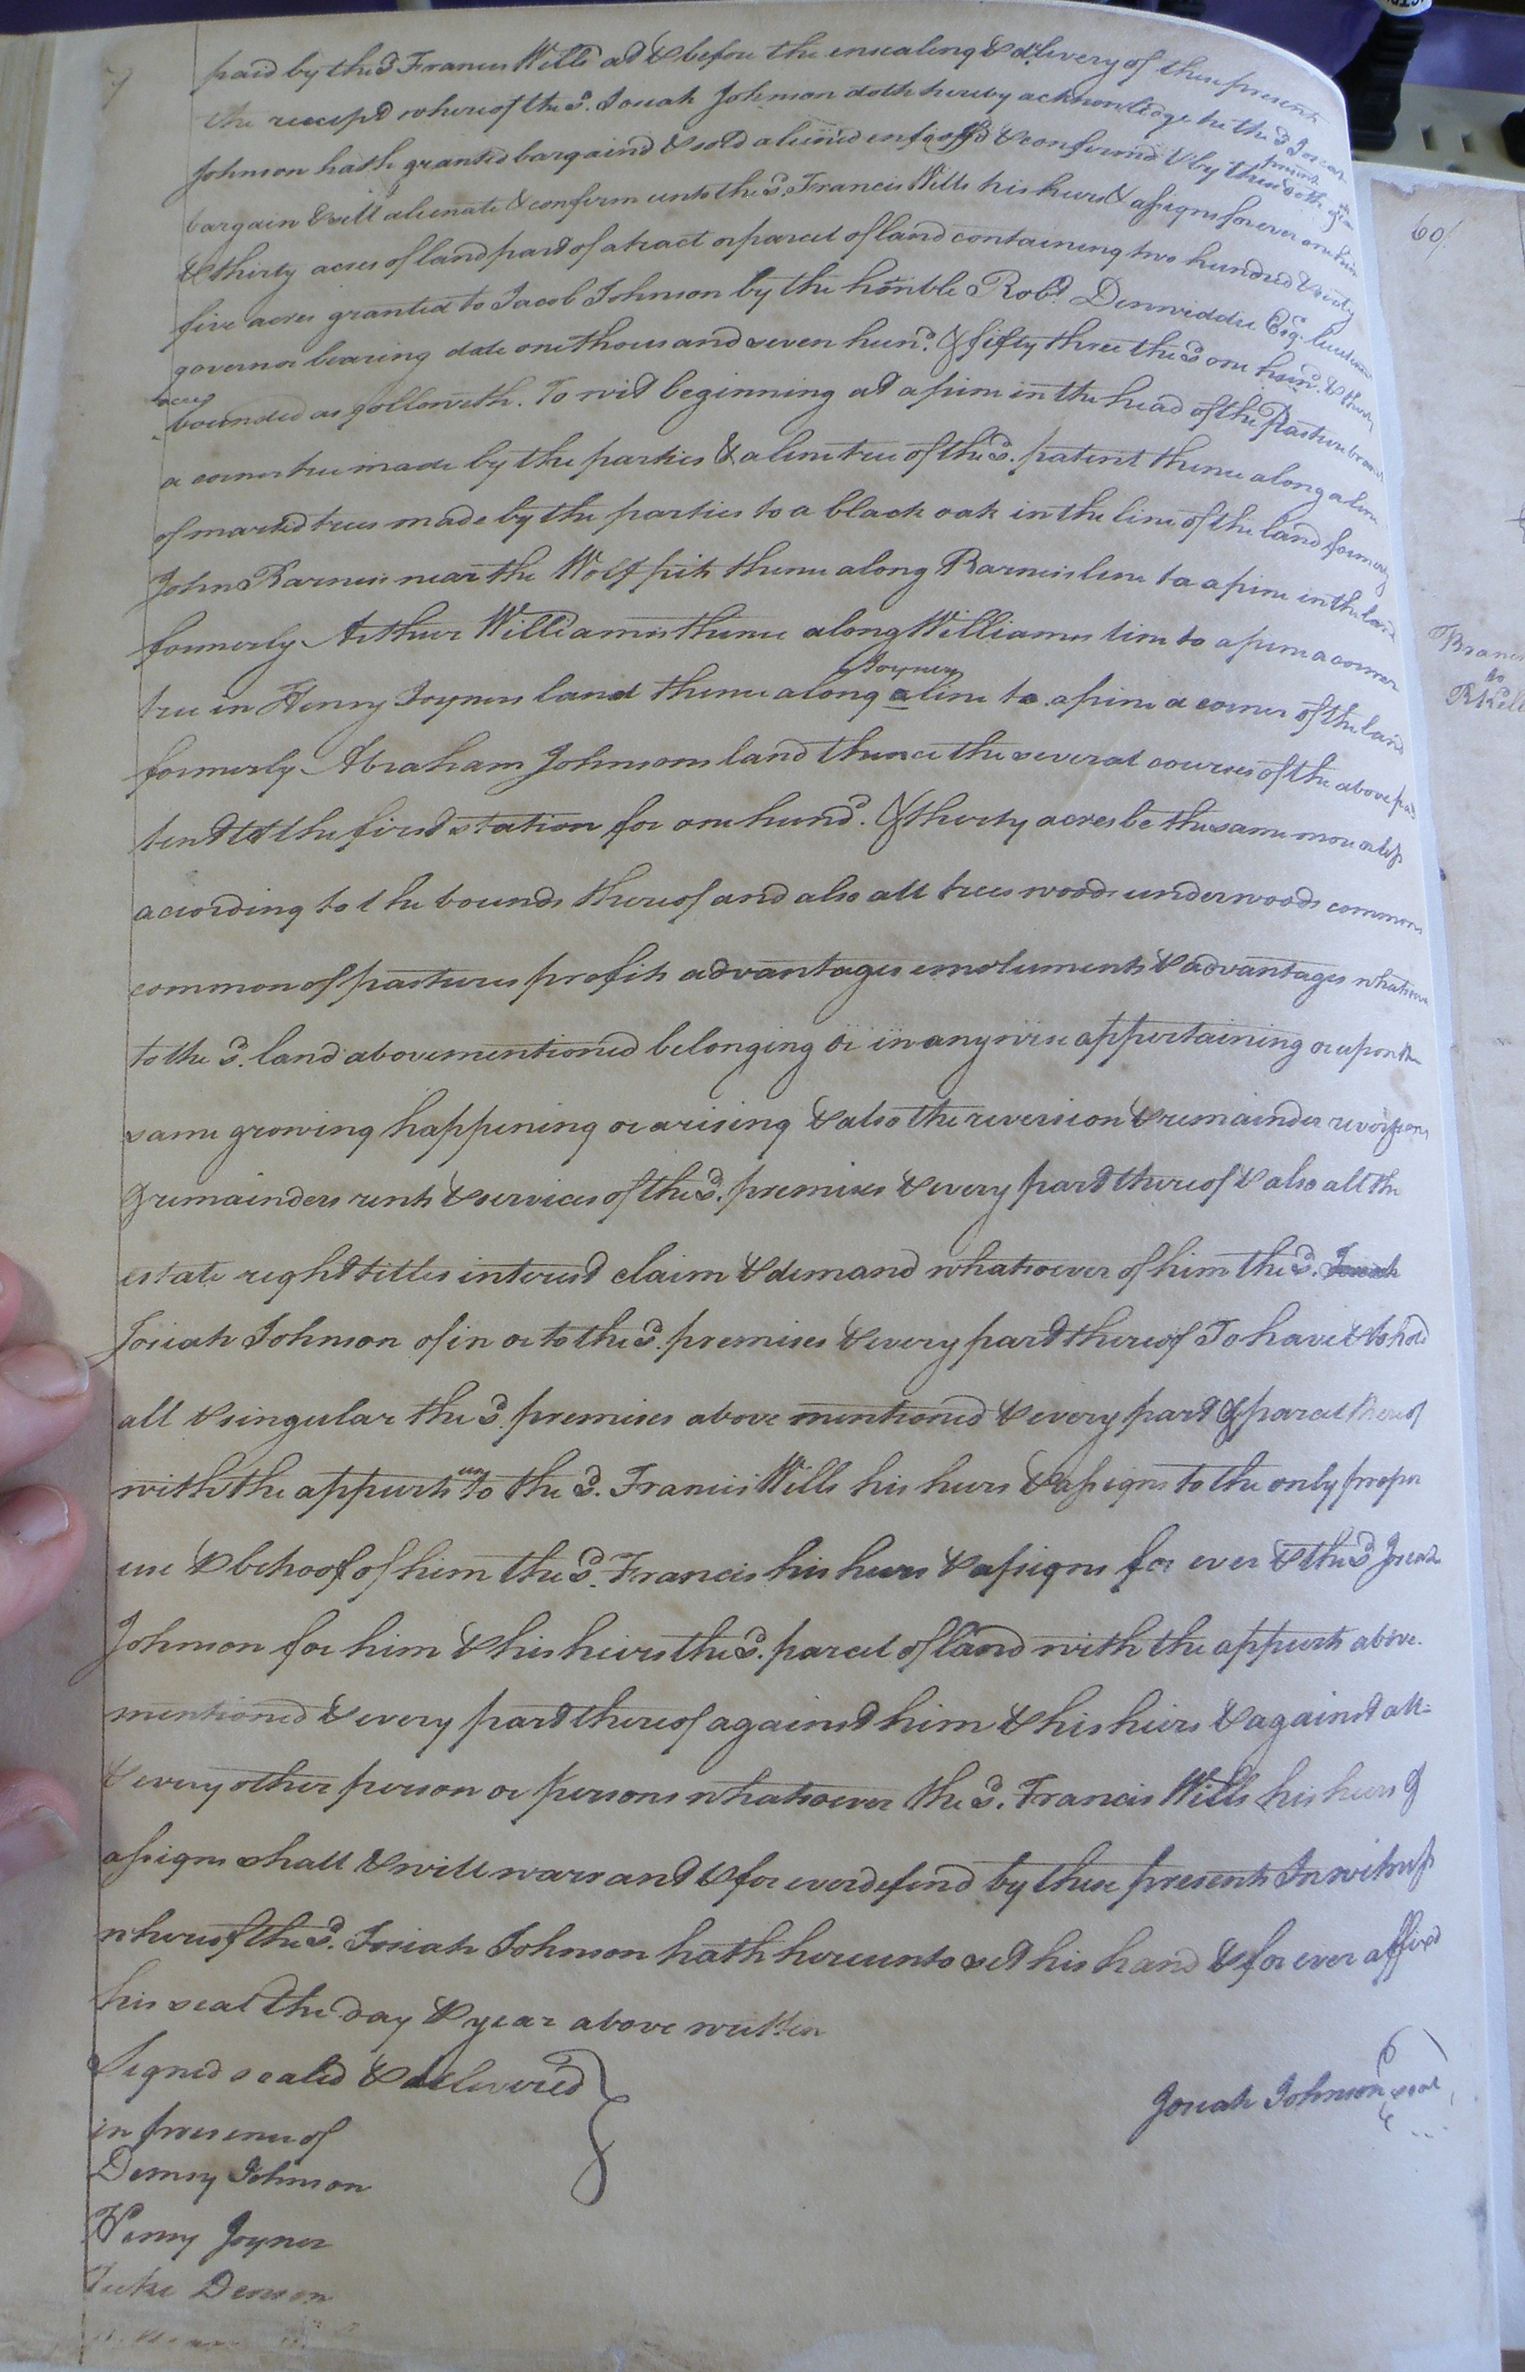 paid by the sd Francis Wills at & before the ensealing & delivery of these presents
the receipt whereof the sd. Josiah Johnson doth hereby acknowledge he the sd Josiah
Johnson hath granted bargaind & sold aliened enfeoff'd & confirmd & by these presents doth
bargain & sell alienate & confirm unto the sd. Francis Wills his heirs & assigns for ever one hun
& thirty acres of land part of a tract or parcel of land containing two hundred & sixty
five acres granted to Jacob Johnson by the honble Robt. Denwiddie Esqr. lieutenant
governor bearing date one thousand seven hund. & fifty three the sd one hund. & thirty
acres
bounded as followeth. To wit beginning at a pine in the head of the Pasture branch
a corner tree made by the parties & a line tree of the sd. patent thence along a line
of marked trees made by the parties to a black oak in the line of the land formerly
John Barneis near the Wolf pit thence along Barneis line to a pine in the land
formerly Arthur Williamss thence along Williamss line to a pine a corner
tree in Henry Joyners land thence along a Joyners line to a pine a corner of the land
formerly Abraham Johnsons land thence the several courses of the above pa
tent to the first station for one hund. & thirty acres be the same more or less
according to the bounds thereof and also all trees woods underwoods commons
common of pastures profits advantages emoluments & advantages whatsoever
to the sd. land abovementioned belonging or in anywise appertaining or upon the
same growing happening or arising & also the reversion & remainder reversions
& remainders rents & services of the sd. premises & every part thereof & also all the
estate right titles interest claim & demand whatsoever of him the sd. Josiah
Josiah Johnson of in or to the sd. premises & every part thereof To have & to hold
all & singular the sd. premises above mentioned & every part & parcel thereof
with the appurts unto the sd. Francis Wills his heirs & assigns to the only proper
use & behoof of him the sd. Francis his heirs & assigns for ever & the sd Josiah
Johnson for him & his heirs the sd. parcel of land with the appurts above.
mentioned & every part thereof against him & his heirs & against all
& every other person or persons whatsoever the sd. Francis Wills his heirs &
assigns shall & will warrant & for ever defend by these presents In witness
whereof the sd. Josiah Johnson hath hereunto set his hand & for ever affixed
his seal the day & year above written
Signed sealed & delivered
in presence of
Josiah Johnson seal
Demsy Johnson
Henry Joyner
Juke Denson
60
to